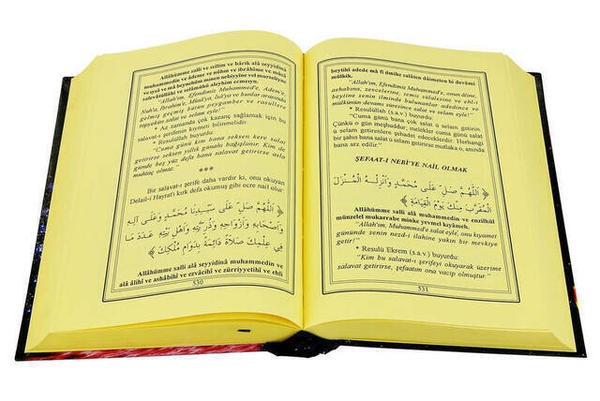 Allâhümme salli ve sellim ve bârik alâ seyyidinâ
muhammedin ve âdeme ve nûhın ve ibrâhîme ve mûsâ
ve ıysâ ve mâ beynehüm minen nebiyyîne vel mürselîne,
salevâtüllâhi ve selâmühû aleyhim ecmeıyn.
"Allah'ım, Efendimiz Muhammed'e, Âdem'e,
Nuh'a, İbrahim'e, Mûsâ'ya, İsâ'ya ve bunlar arasında
gelmiş geçmiş bütün peygamber ve rasüllere
teşrifen salât ve selam eyle!"
* Az zamanda çok kazanç sağlamak için bu
salavat-ı şerifenin kıymeti bilinmelidir.
* Resulüllah buyurdu:
"Cuma günü kim bana seksen kere salat
getirirse seksen yıllık günahı bağışlanır. Kim de
günde beş yüz defa bana salavat getirirse asla
muhtaç olmaz."
***
Bir salavat-ı şerife daha vardır ki, onu okuyan
Delail-i Hayrat'ı kırk defa okumuş gibi ecre nail olur:
اَللّٰهُمَّ صَلِّ عَلٰى سَيِّدِنَا مُحَمَّدٍ وَعَلٰى اٰلِهِ
وَاَصْحَابِهِ وَاَزْوَاجِهِ وَذُرِّيَّتِهِ وَاَهْلِ بَيْتِهِ عَدَدَ مَا
فِى عِلْمِكَ صَلَاةً دَائِمَةً بِدَوَامِ مُلْكِكَ
Allâhümme salli alâ seyyidinâ muhammedin ve
alâ âlihî ve ashâbihî ve ezvâcihî ve zürriyyetihî ve ehli
530
beytihî adede mâ fî ılmike salâten dâimeten bi devâmi
mülkik.
"Allah'ım, Efendimiz Muhammed'e, onun âline,
ashabına, zevcelerine, temiz sülalesine ve ehl-i
beytine senin ilminde bulunanlar adedince ve
mülkünün devamı süresince salat ve selam eyle!"
* Resulüllah (s.a.v.) buyurdu:
"Cuma günü bana çok salat ü selam getirin.
Çünkü o gün meşhuddur, melekler cuma günü salat
ü selam getirenlere şehadet edeceklerdir. Herhangi
biriniz bana salat ü selam getirirse mutlaka o, anında
bana arz edilir."
ŞEFAAT-I NEBİ'YE NAİL OLMAK
اَللّٰهُمَّ صَلِّ عَلٰى مُحَمَّدٍ وَاَنْزِلْهُ الْمُنْزَلَ
الْمُقَرَّبَ مِنْكَ يَوْمَ الْقِيَامَةِ
Allâhümme salli alâ muhammedin ve enzilhül
münzelel mukarrabe minke yevmel kıyâmeh.
"Allah'ım, Muhammed'e salat eyle, onu kıyamet
gününde senin nezd-i ilahine yakın bir mevkiye
getir!"
* Resulü Ekrem (s.a.v.) buyurdu:
"Kim bu salavat-ı şerifeyi okuyarak üzerime
salavat getirirse, şefaatım ona vacip olmuştur."
531